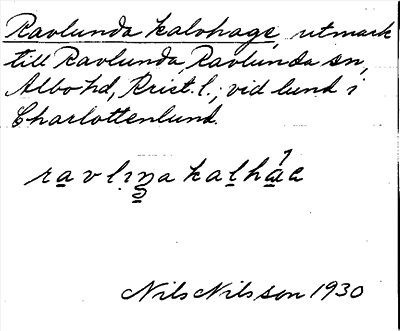 Ravlunda kalvhage, utmark
till Ravlunda, Ravlunda sn,
Albo hd, Krist. l., vid lund i
Charlottenlund.
Nils Nilsson 1930